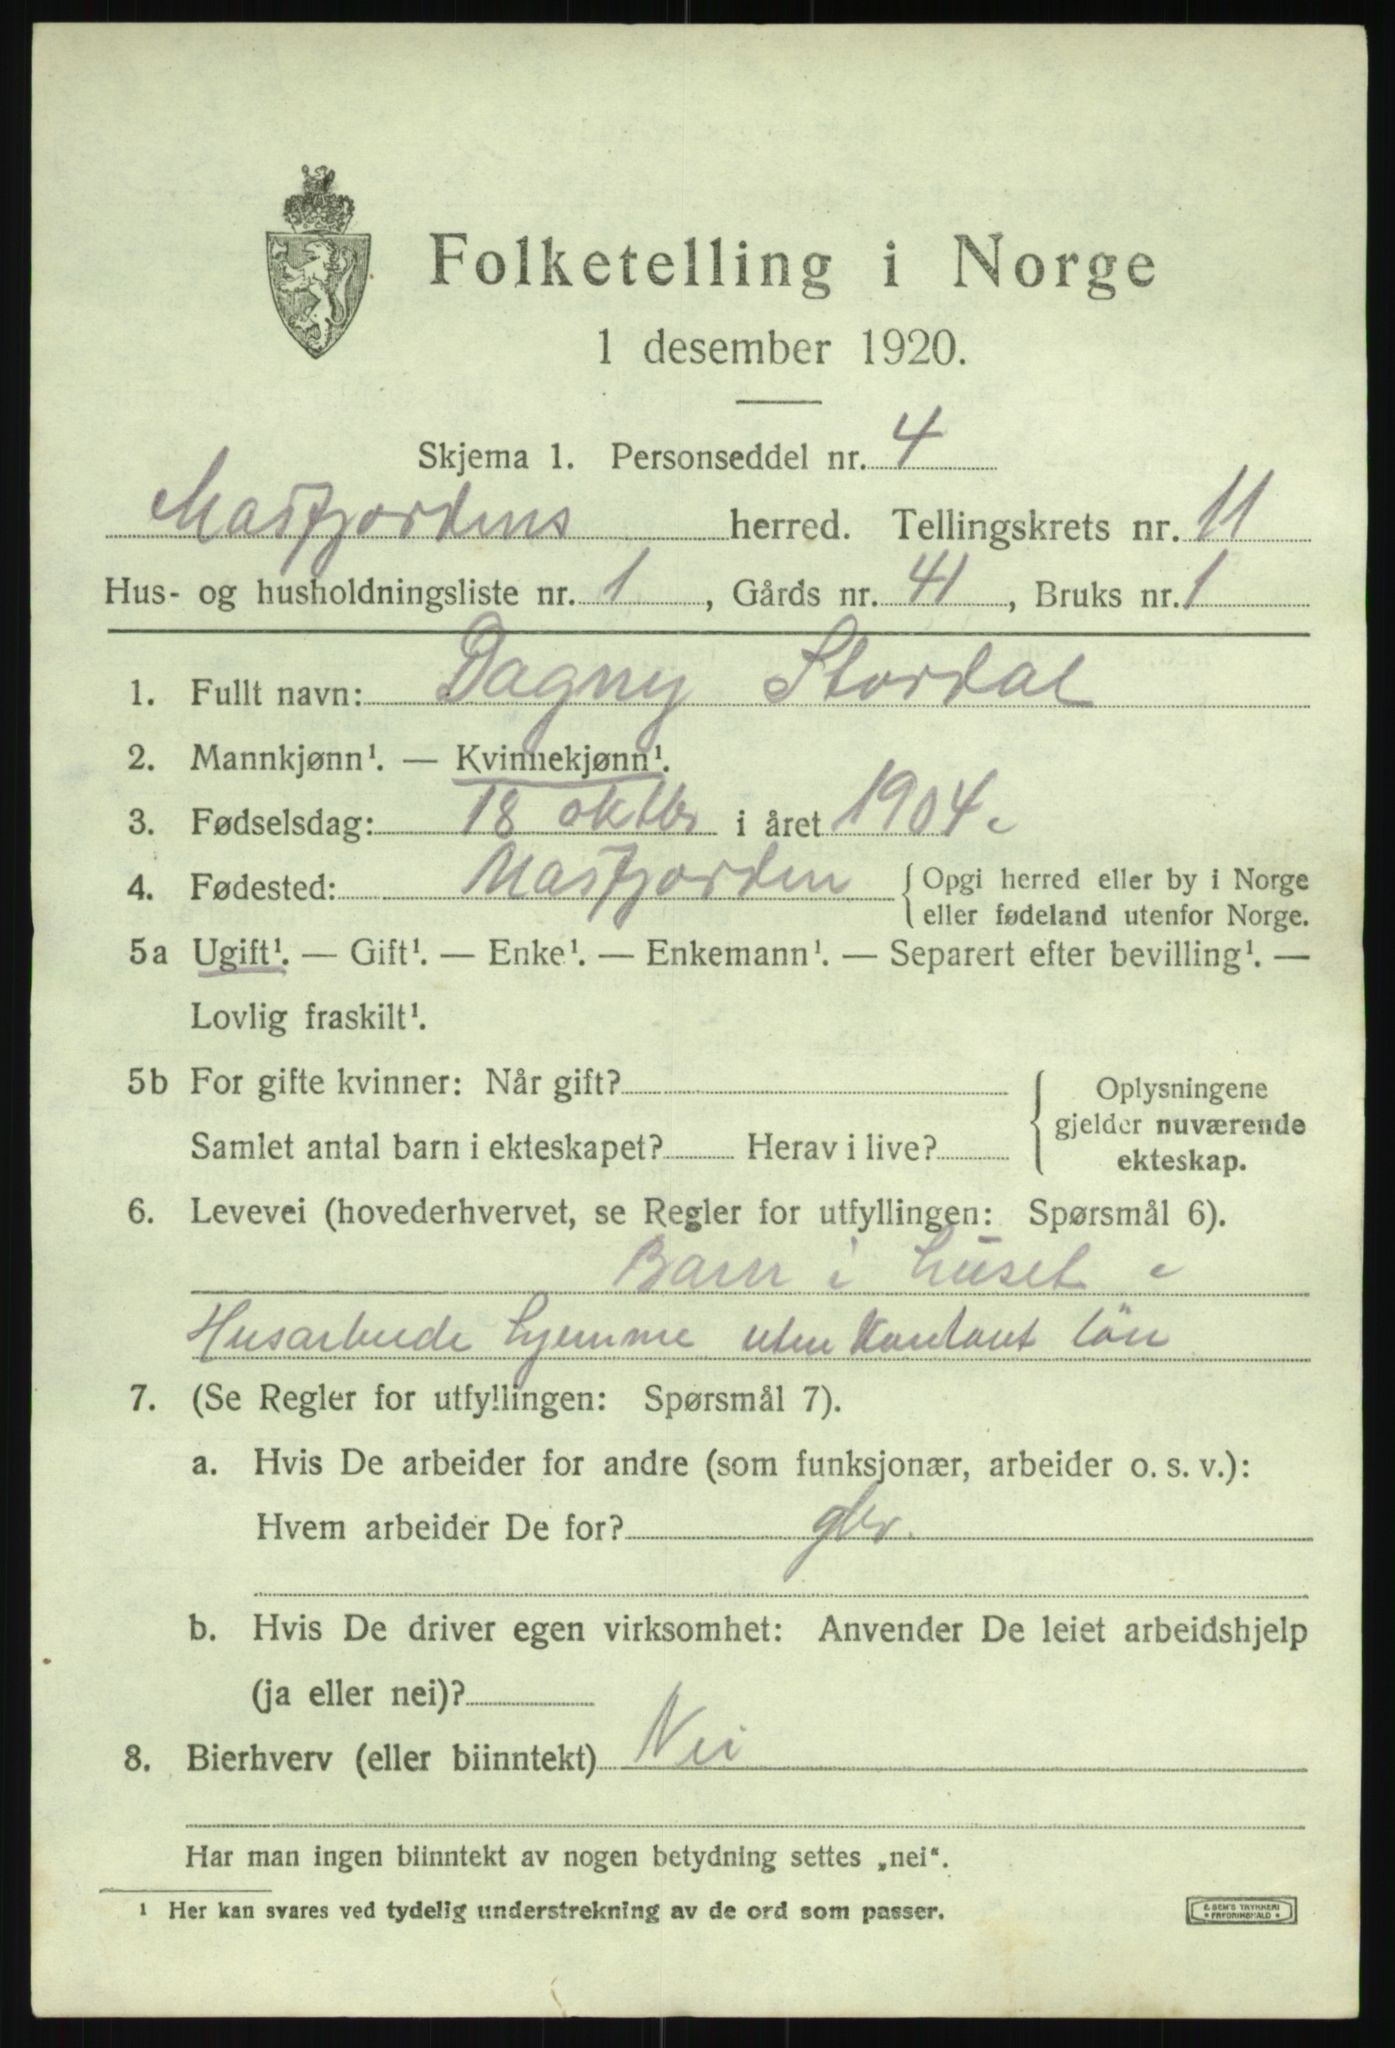 Folketelling i Norge
1 desember 1920.
Skjema 1. Personseddel nr. 4
Masfjordens herred. Tellingskrets nr. 11
Hus- og husholdningsliste nr. 1, Gårds nr. 41, Bruks nr. 1
1. Fullt navn: Dagny Stordal
2. Mannkjønn¹. — Kvinnekjønn¹.
3. Fødselsdag: 18 oktbr i året 1904.
4. Fødested: Masfjorden { Opgi herred eller by i Norge
eller fødeland utenfor Norge.
5a Ugift¹. — Gift¹. — Enke¹. — Enkemann¹. — Separert efter bevilling¹. —
Lovlig fraskilt¹.
5b For gifte kvinner: Når gift?
Samlet antal barn i ekteskapet? Herav i live?
Oplysningene
gjelder nuværende
ekteskap.
6. Levevei (hovederhvervet, se Regler for utfyllingen: Spørsmål 6).
Barn i huset
Husarbeide hjemme uten Kontant løn
7. (Se Regler for utfyllingen: Spørsmål 7).
a. Hvis De arbeider for andre (som funksjonær, arbeider o. s. v.):
Hvem arbeider De for? gbr.
b. Hvis De driver egen virksomhet: Anvender De leiet arbeidshjelp
(ja eller nei)?
8. Bierhverv (eller biinntekt) Nei
Har man ingen biinntekt av nogen betydning settes „nei“.
¹ Her kan svares ved tydelig understrekning av de ord som passer.
E. SEM'S TRYKKERI
FREDRIKSHALD